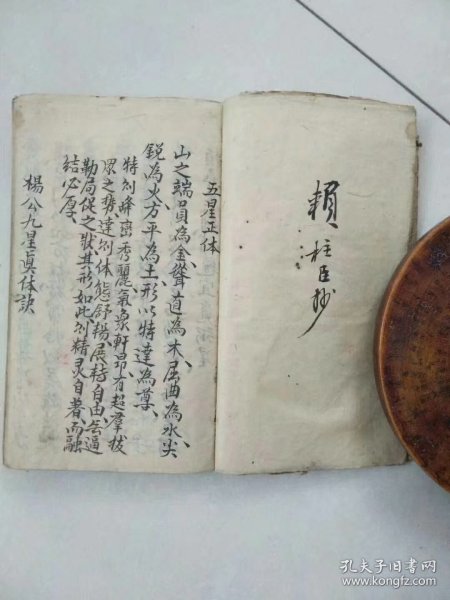 賴桂臣抄
五星正体
山之端員為金聳道為木屈曲為水尖
鋭為火方平為土形以特達為尊
特則峰巒秀麗氣象軒昂有超羣拔
眾之勢達則体態舒暢展轉自由無逼
勒局促之狀其形如此則精灵自著而融
結必厚
楊公九星真体訣
孔夫子旧书网
www.kongfz.com